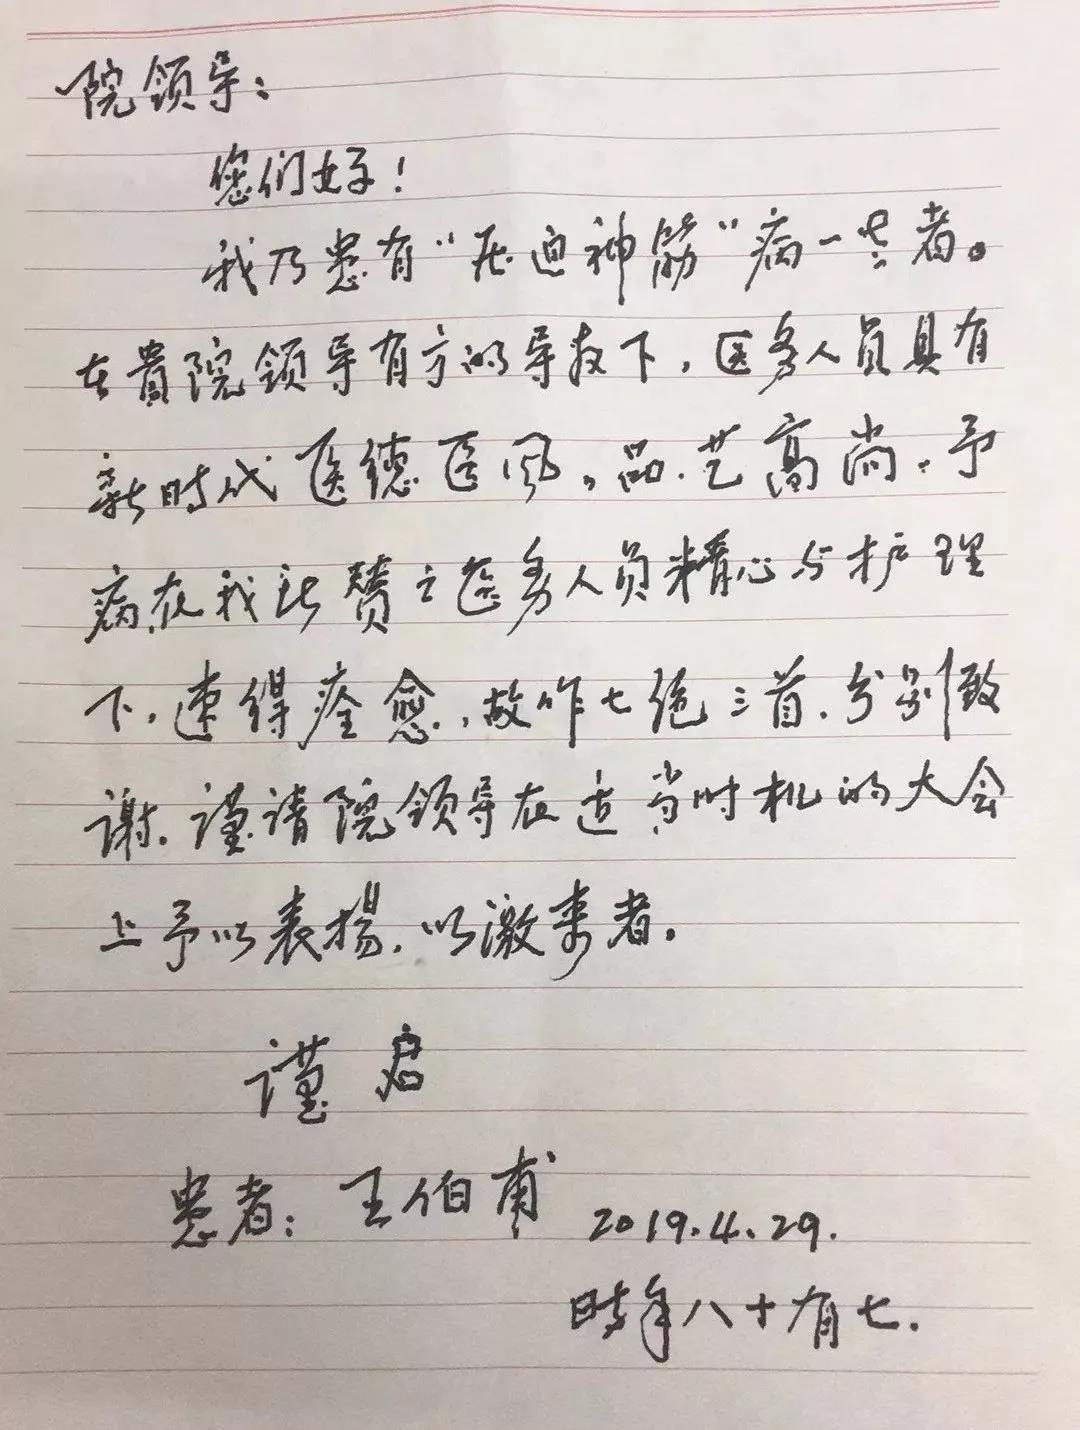 院领导：
您们好！
我乃患有“压迫神筋”病一老者。
在貴院领导有方的导教下，医务人员具有
新时代医德医风，品、艺高尚，予
病在我 赞之医务人员精心与护理
下，速得痊愈，故作七绝三首，分别致
谢。谨请院领导在适当时机的大会
上予以表揚，以激来者。
谨启
患者：王伯甫 2019.4.29.
时年八十有七.